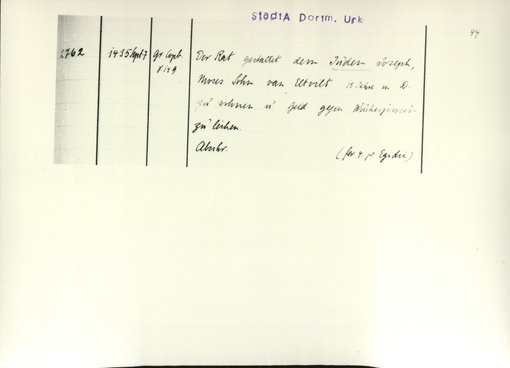 StadtA Dortm. Urk
44
2762
1435 Sept 7
gr. Copb.
Der Rat gestattet dem Juden Joseph,
Moses Sohn van Eltvelt 10 Jahre in D.
zu wohnen u Geld gegen Wucherzinsen
zu leihen.
Abschr.
(fer. 4. p. Egidii)